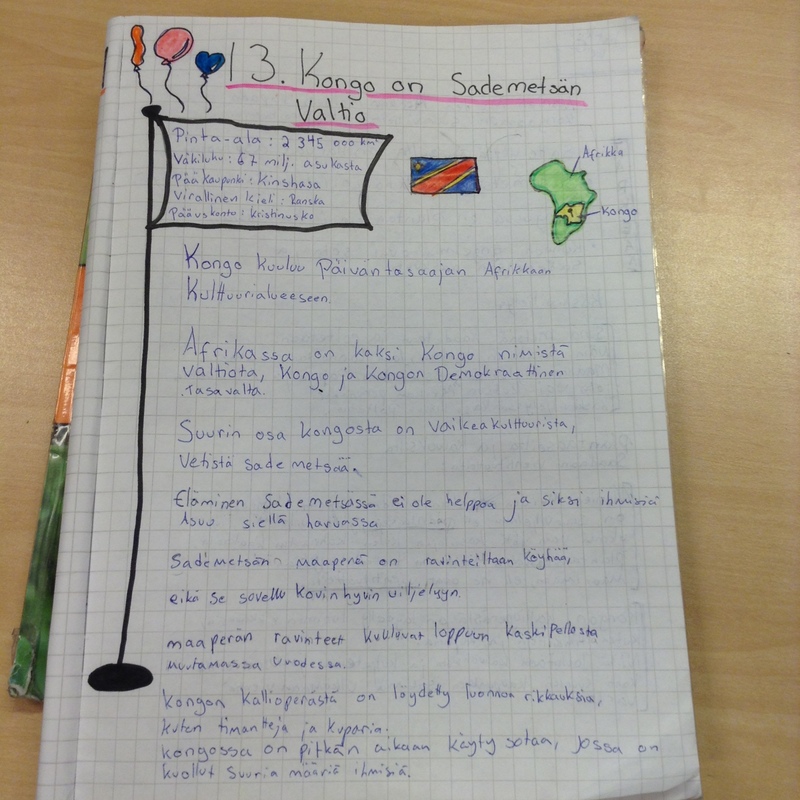 13. Kongo on Sademetsän
Valtio
Pinta-ala : 2 345 000 km²
Väkiluku : 67 milj. asukasta
Pääkaupunki : Kinshasa
Virallinen kieli : Ranska
Pääuskonto : Kristinusko
Afrikka
Kongo
Kongo kuuluu Päiväntasaajan Afrikkaan
Kulttuurialueeseen.
Afrikassa on kaksi Kongo nimistä
valtiota, Kongo ja Kongon Demokraattinen
Tasavalta.
Suurin osa kongosta on vaikeakulttuurista,
Vetistä sademetsää.
Eläminen Sademetsässä ei ole helppoa ja siksi ihmisiä
Asuu siellä harvassa
Sademetsän maaperä on ravinteiltaan köyhää,
eikä se sovellu kovinhyvin viljelyyn.
maaperän ravinteet kuuluvat loppuun kaskipellosta
muutamassa vuodessa.
Kongon kallioperästä on löydetty luonnon rikkauksia,
kuten timantteja ja kuparia.
kongossa on pitkän aikaan käyty sotaa, jossa on
kuollut suuria määriä ihmisiä.